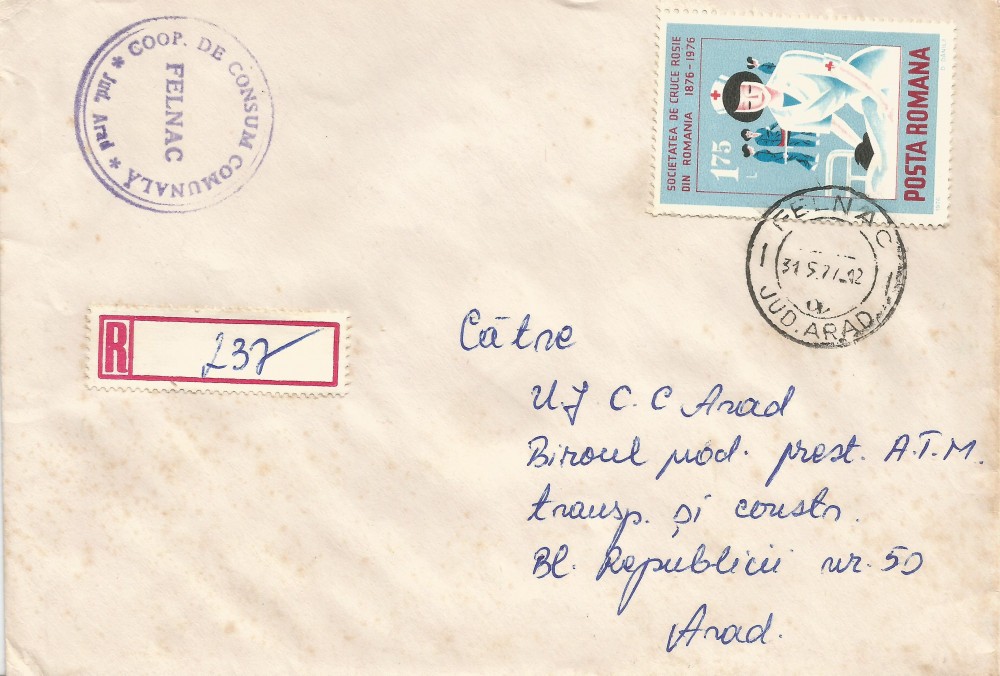 COOP. DE CONSUM COMUNALĂ
FELNAC
* Jud. Arad *
SOCIETATEA DE CRUCE ROSIE
DIN ROMANIA 1876-1976
175
L
POSTA ROMANA
FELNAC
31.5.77.12
JUD. ARAD
R 237
Cãtre
U.J C.C Arad
Biroul prod. prest. A.T.M.
transp. și constr.
Bl. Republicii nr. 50
Arad.